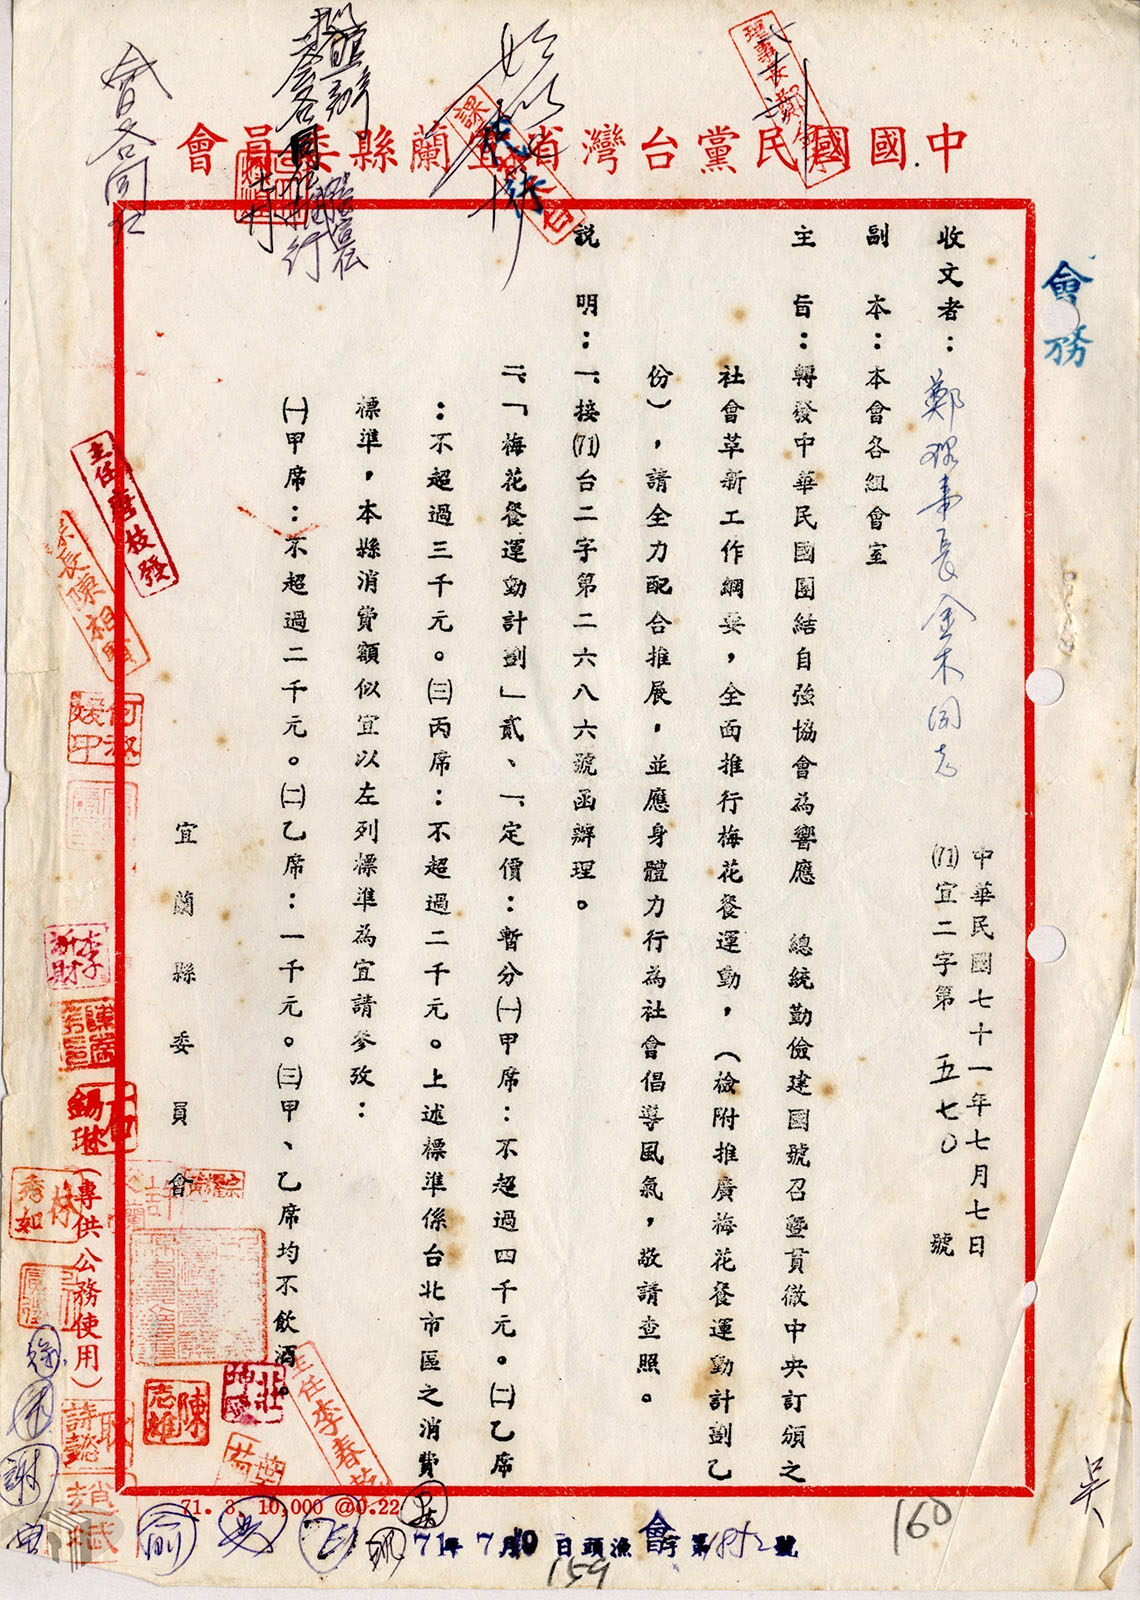 中國國民黨台灣省宜蘭縣委員會
會務
中華民國七十一年七月七日
(71)宜二字第 五七〇 號
收文者：鄭理事長金木同志
副　本：本會各組會室
主　旨：轉發中華民國團結自強協會為響應　總統勤儉建國號召暨貫徹中央訂頒之
社會革新工作綱要，全面推行梅花餐運動，（檢附推廣梅花餐運動計劃乙
份），請全力配合推展，並應身體力行為社會倡導風氣，敬請查照。
說　明：一、接(71)台二字第二六八六號函辦理。
二、「梅花餐運動計劃」貳、一、定價：暫分㈠甲席：不超過四千元。㈡乙席
：不超過三千元。㈢丙席：不超過二千元。上述標準係台北市區之消費
標準，本縣消費額似宜以左列標準為宜請參攷：
㈠甲席：不超過二千元。㈡乙席：一千元。㈢甲、乙席均不飲酒。
宜蘭縣委員會
（專供公務使用）
主任李春
李新財
林秀如
陳志雄
71. 3. 10,000 @0.22
71年 7月10日頭漁會字第 號
159
160
吳